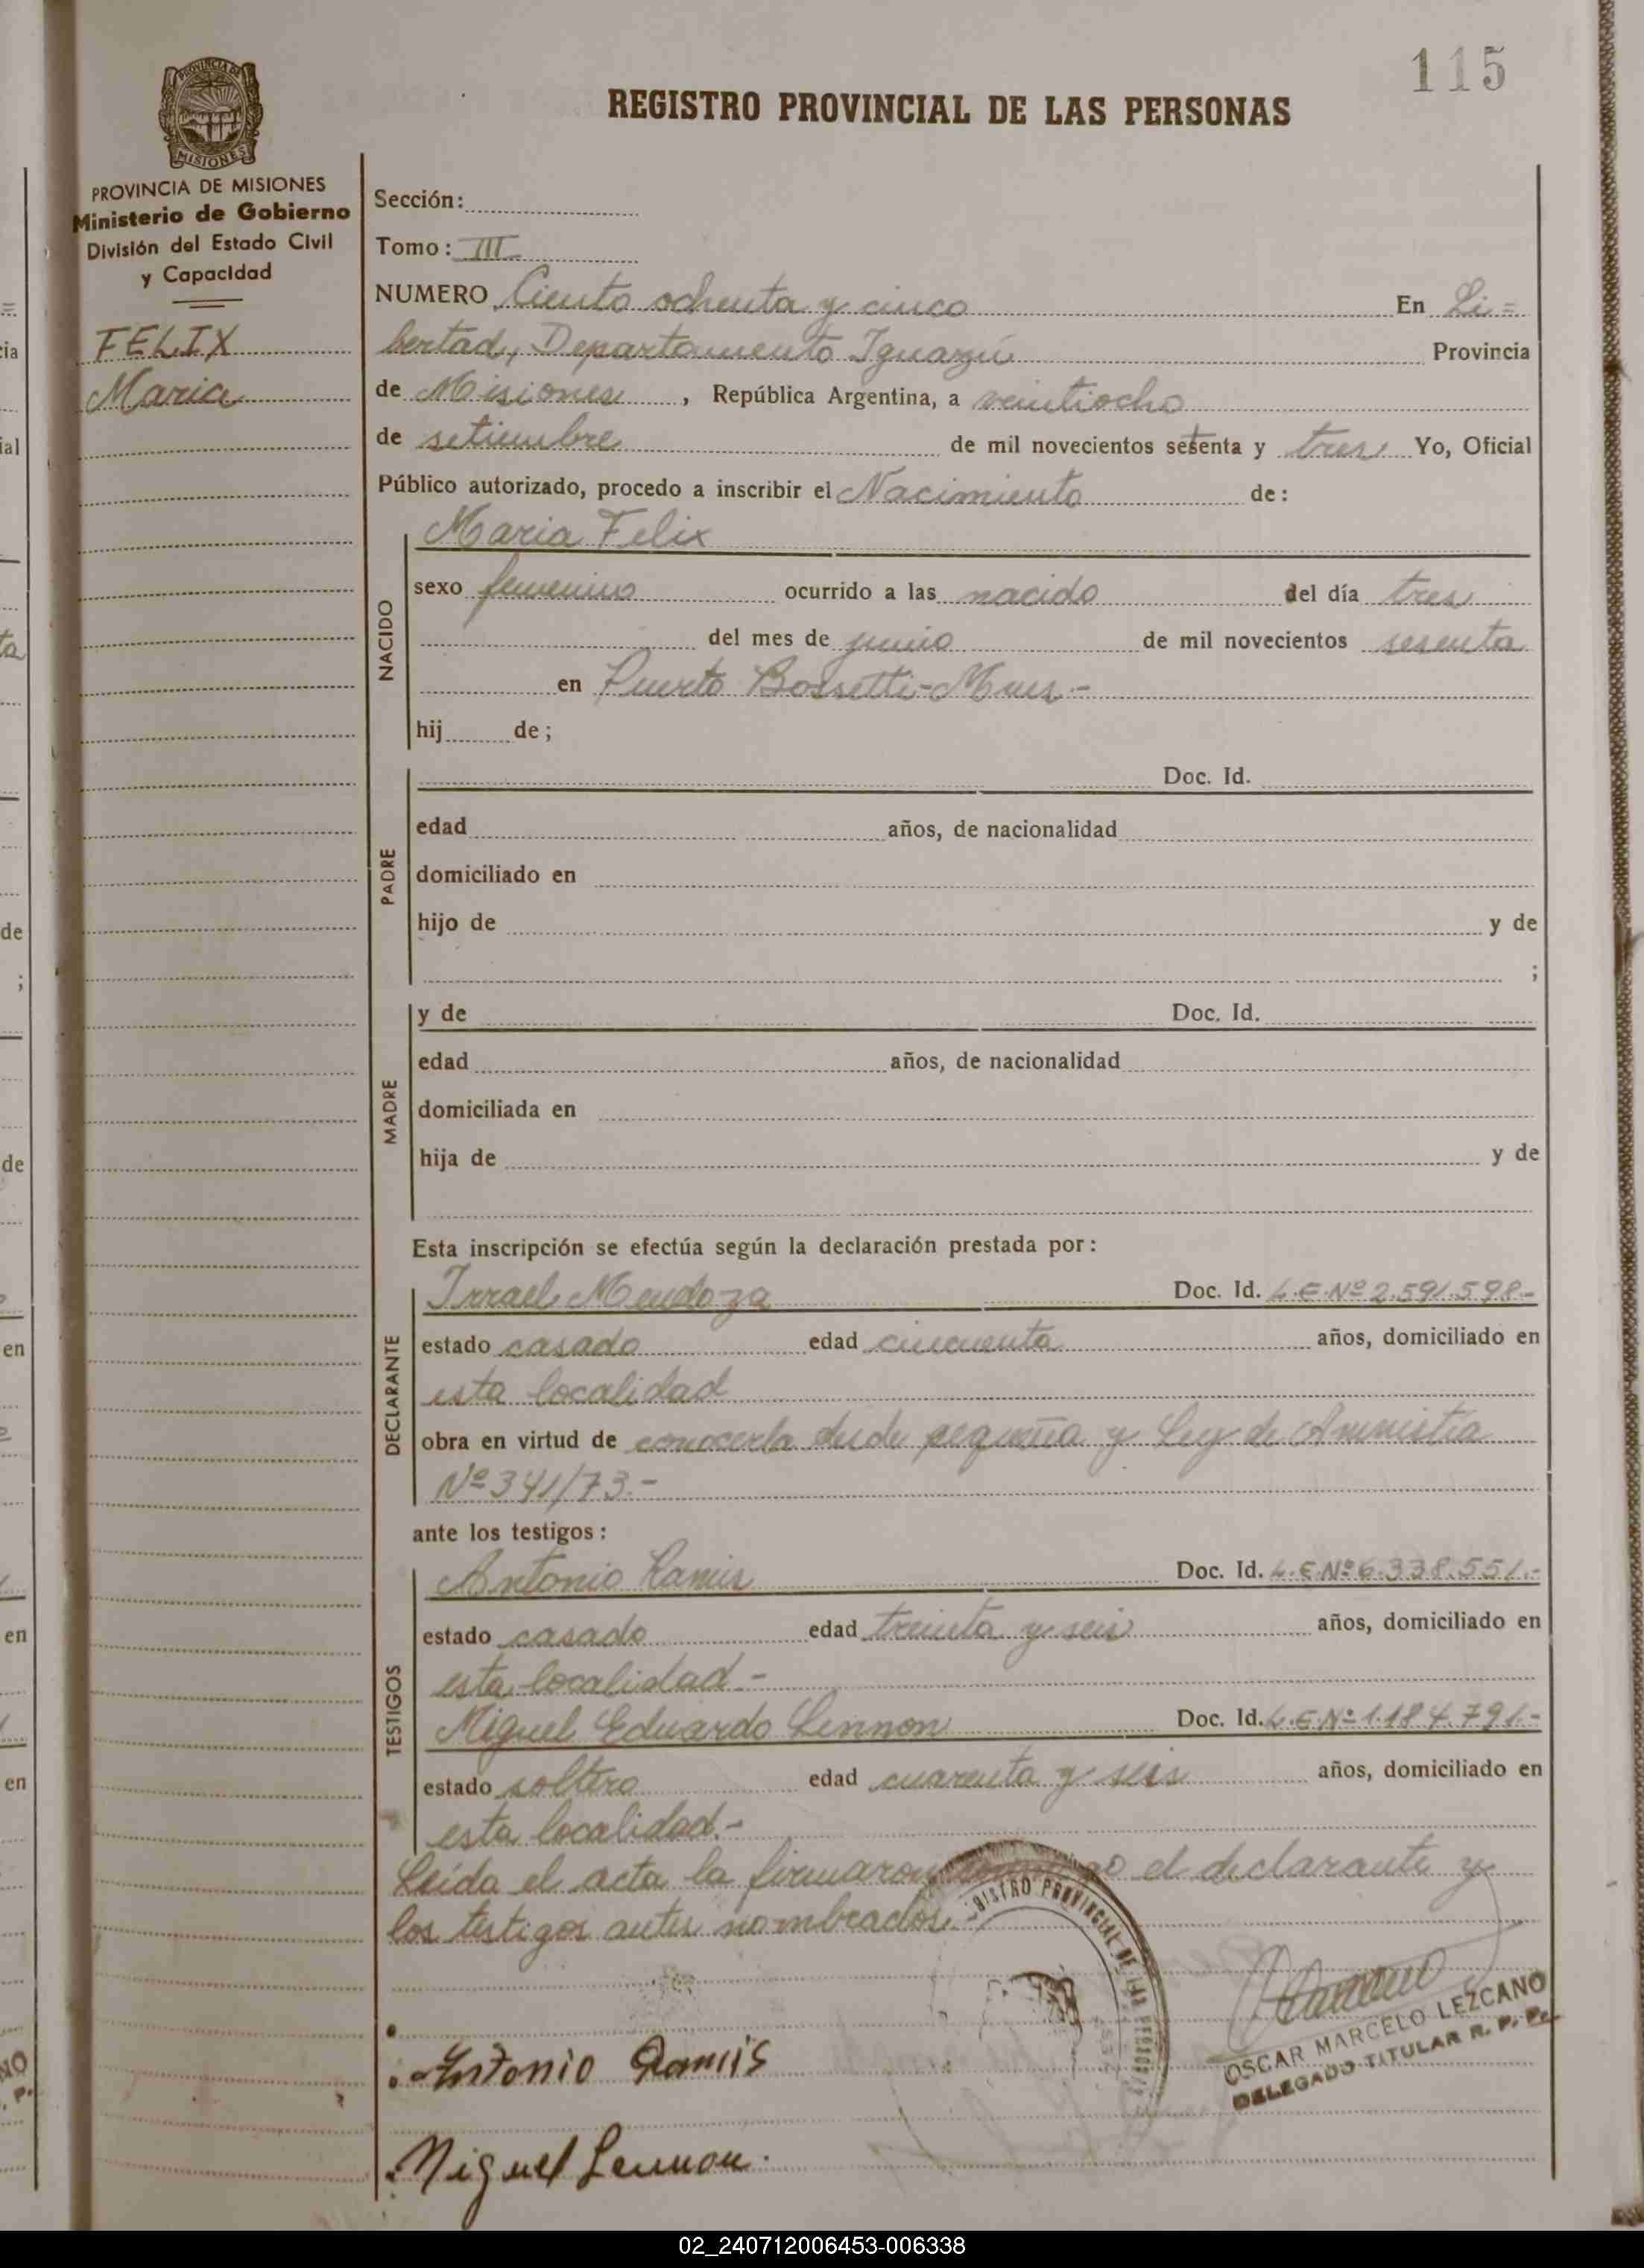 115
REGISTRO PROVINCIAL DE LAS PERSONAS
PROVINCIA DE MISIONES
MISIONES
PROVINCIA DE MISIONES
Ministerio de Gobierno
División del Estado Civil
y Capacidad
FELIX
Maria
Sección:
Tomo: III
NUMERO Ciento ochenta y cinco En Li=
bertad, Departamento Iguazú Provincia
de Misiones, República Argentina, a veintiocho
de setiembre de mil novecientos setenta y tres Yo, Oficial
Público autorizado, procedo a inscribir el Nacimiento de:
NACIDO
Maria Felix
sexo femenino ocurrido a las nacido del día tres
del mes de junio de mil novecientos sesenta
en Puerto Bossetti-Mnes.-
hij de;
PADRE
Doc. Id.
edad años, de nacionalidad
domiciliado en
hijo de y de
;
MADRE
y de Doc. Id.
edad años, de nacionalidad
domiciliada en
hija de y de
Esta inscripción se efectúa según la declaración prestada por:
DECLARANTE
Irrael Mendoza Doc. Id. L.E.Nº2.591.598.-
estado casado edad cincuenta años, domiciliado en
esta localidad
obra en virtud de conocerla desde pequeña y Ley de Amnistia
Nº341/73.-
ante los testigos:
TESTIGOS
Antonio Ramis Doc. Id. L.E.Nº6.338.551.-
estado casado edad treinta y seis años, domiciliado en
esta localidad.-
Miguel Eduardo Lennon Doc. Id. L.E.Nº1.184.791.-
estado soltero edad cuarenta y seis años, domiciliado en
esta localidad.-
Leída el acta la firmaron el declarante y
los testigos antes nombrados.-
REGISTRO PROVINCIAL DE LAS PERSONAS
OSCAR MARCELO LEZCANO
DELEGADO TITULAR R. P. P.
Antonio Ramis
Miguel Lennon.
02_240712006453-006338